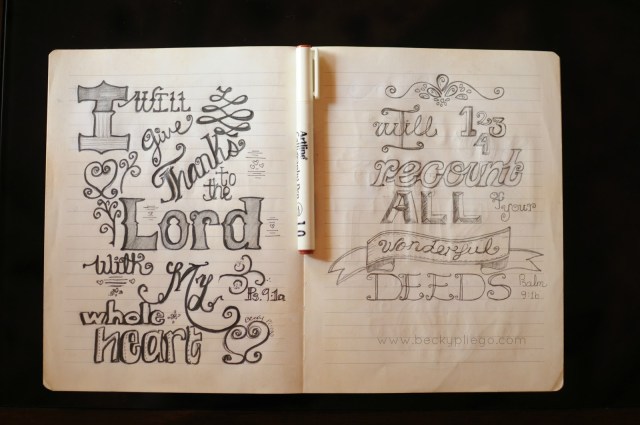 I will
give
Thanks
to
the
Lord
With My
Ps. 9:1a
whole
heart
Artline
1.0
I will 123
4
recount
ALL of your
wonderful
DEEDS Psalm
9:1b
www.beckypliego.com